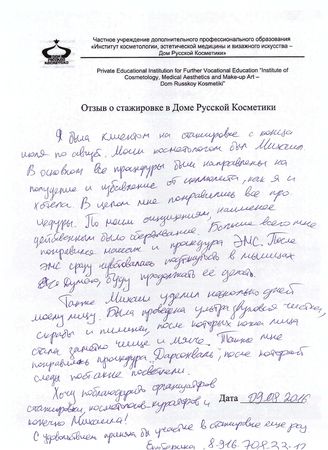 Частное учреждение дополнительного профессионального образования
«Институт косметологии, эстетической медицины и визажного искусства –
Дом Русской Косметики»
Private Educational Institution for Further Vocational Education "Institute of
Cosmetology, Medical Aesthetics and Make-up Art –
Dom Russkoy Kosmetiki"
Отзыв о стажировке в Доме Русской Косметики
Я была клиентом на стажировке с конца
июля по август. Моим косметологом был Михаил
В основном все процедуры были направлены на
похудение и избавление от целлюлита, как я и
хотела. В целом мне понравились все про-
цедуры. По моим ощущениям, наименее
действенным было обертывание. Больше всего мне
понравился массаж и процедура ЭМС. После
ЭМС сразу чувствовалась подтянутость в мышцах
думаю, буду продолжать ее делать.
Также Михаил уделил несколько дней
моему лицу. Была проведена ультразвуковая чистка,
и пилинги, после которых кожа лица
стала заметно чище и мягче. Также мне
понравилась процедура "Дарсонваль", после которой
следы постакне посветлели.
Хочу поблагодарить организаторов
стажировки, косметологов-кураторов и
конечно Михаила!
Дата 09.08.2016
С удовольствием приняла бы участие в стажировке еще раз
Екатерина 8-916-708-22-12